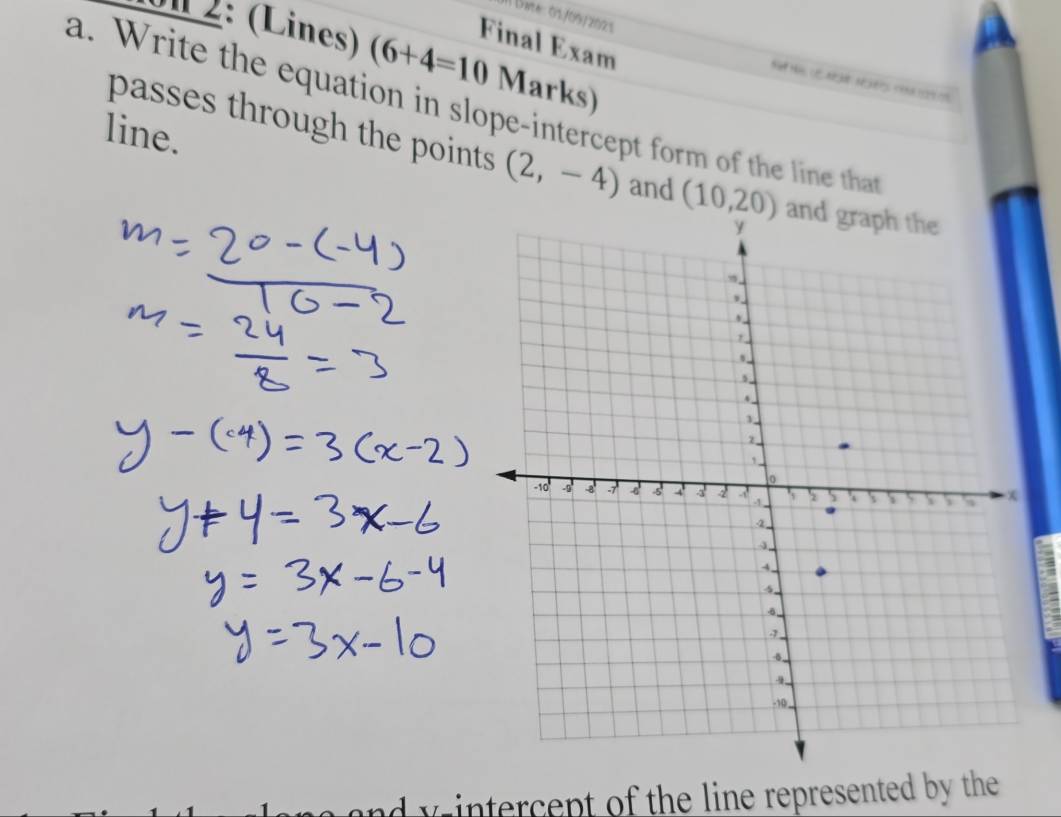 Date: 01/09/2021
Final Exam
2: (Lines) (6+4=10 Marks)
a. Write the equation in slope-intercept form of the line that
passes through the points (2, − 4) and (10,20) and graph the
line.
m = 20-(-4)
10-2
m = 24/8 = 3
y-(-4) = 3(x-2)
y+4 = 3x-6
y = 3x-6-4
y = 3x-10
y
10
9
8
7
6
5
4
3
2
1
-10 -9 -8 -7 -6 -5 -4 -3 -2 -1 0 1 2 3 4 5 6 7 8 9 10 x
-1
-2
-3
-4
-5
-6
-7
-8
-9
-10
and y-intercept of the line represented by the